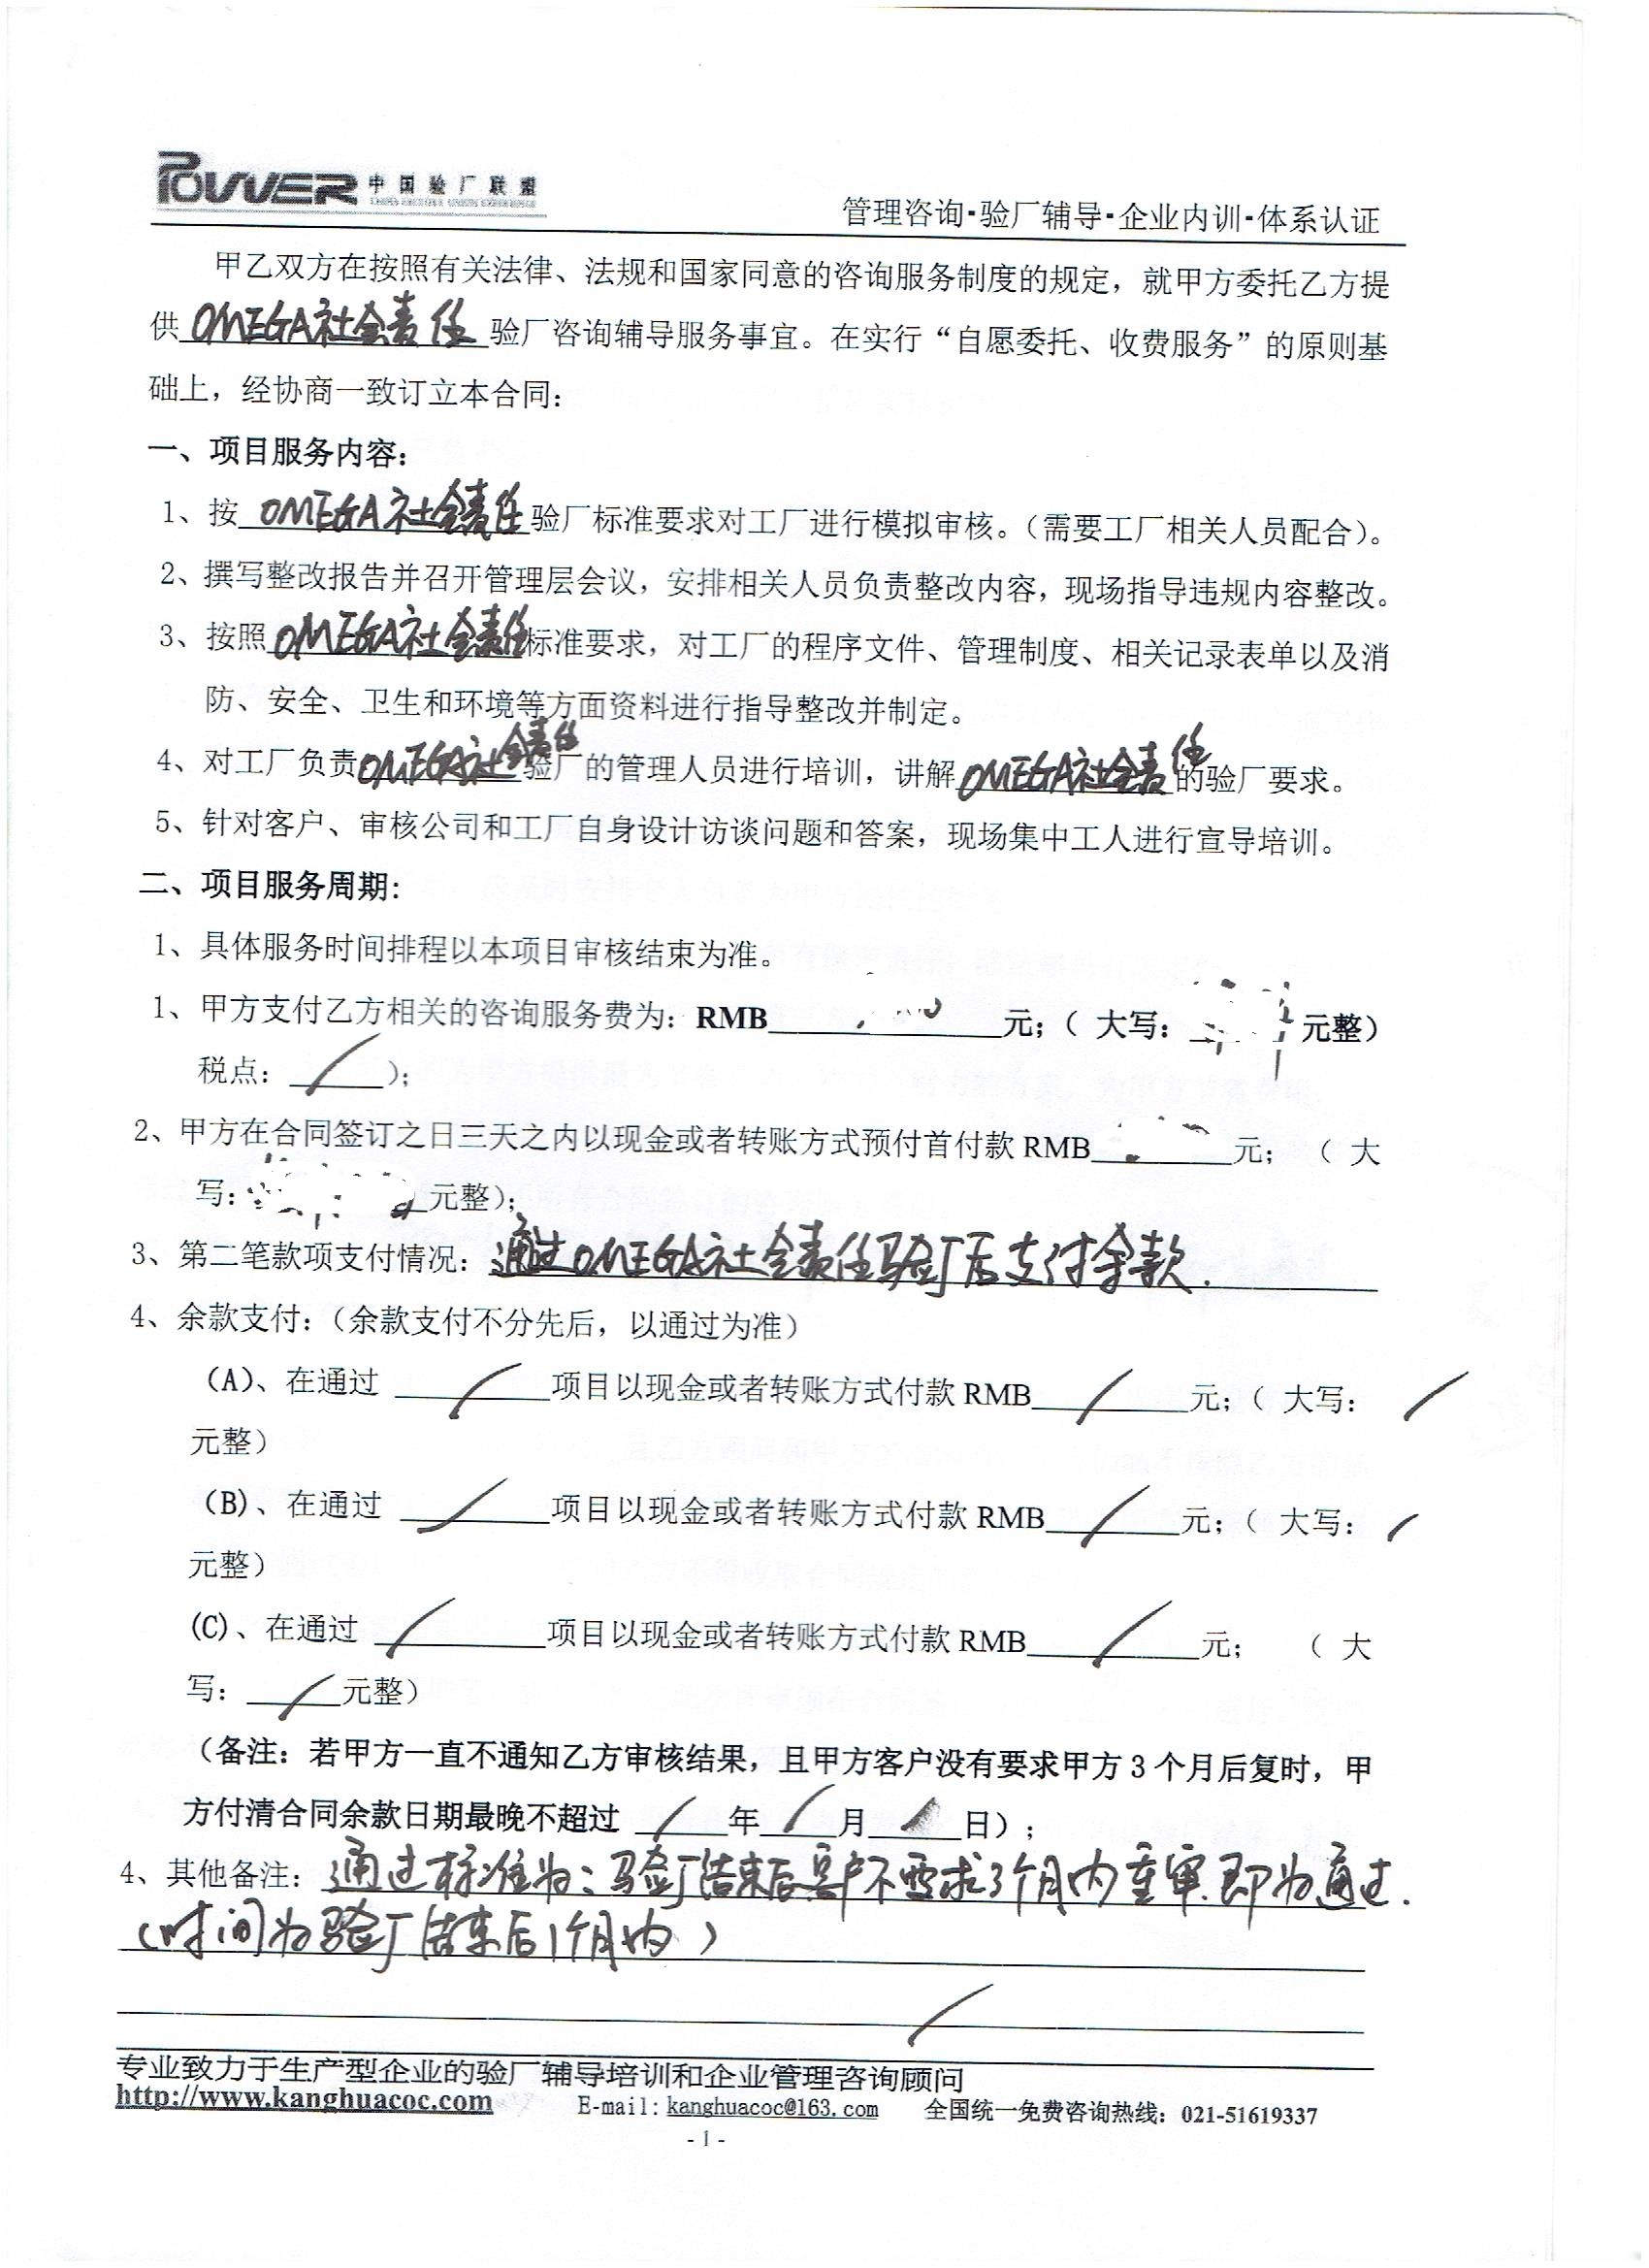 POWER 中国验厂联盟
管理咨询·验厂辅导·企业内训·体系认证
甲乙双方在按照有关法律、法规和国家同意的咨询服务制度的规定，就甲方委托乙方提
供 OMEGA社会责任 验厂咨询辅导服务事宜。在实行“自愿委托、收费服务”的原则基
础上，经协商一致订立本合同：
一、项目服务内容：
1、按 OMEGA社会责任 验厂标准要求对工厂进行模拟审核。（需要工厂相关人员配合）。
2、撰写整改报告并召开管理层会议，安排相关人员负责整改内容，现场指导违规内容整改。
3、按照 OMEGA社会责任 标准要求，对工厂的程序文件、管理制度、相关记录表单以及消
防、安全、卫生和环境等方面资料进行指导整改并制定。
4、对工厂负责 OMEGA社会责任 验厂的管理人员进行培训，讲解 OMEGA社会责任 的验厂要求。
5、针对客户、审核公司和工厂自身设计访谈问题和答案，现场集中工人进行宣导培训。
二、项目服务周期：
1、具体服务时间排程以本项目审核结束为准。
1、甲方支付乙方相关的咨询服务费为：RMB 元；（ 大写： 元整）
税点： / ）；
2、甲方在合同签订之日三天之内以现金或者转账方式预付首付款 RMB 元； （ 大
写： 元整）；
3、第二笔款项支付情况：通过OMEGA社会责任验厂后支付余款.
4、余款支付：（余款支付不分先后，以通过为准）
（A）、在通过 / 项目以现金或者转账方式付款 RMB / 元；（ 大写： /
元整）
（B）、在通过 / 项目以现金或者转账方式付款 RMB / 元；（ 大写： /
元整）
（C）、在通过 / 项目以现金或者转账方式付款 RMB / 元； （ 大
写： / 元整）
（备注：若甲方一直不通知乙方审核结果，且甲方客户没有要求甲方 3 个月后复时，甲
方付清合同余款日期最晚不超过 / 年 / 月 / 日）；
4、其他备注：通过标准为：验厂结束后客户不要求3个月内重审.即为通过.
（时间为验厂结束后1个月内）
/
专业致力于生产型企业的验厂辅导培训和企业管理咨询顾问
http://www.kanghuacoc.com E-mail: kanghuacoc@163.com 全国统一免费咨询热线：021-51619337
- 1 -